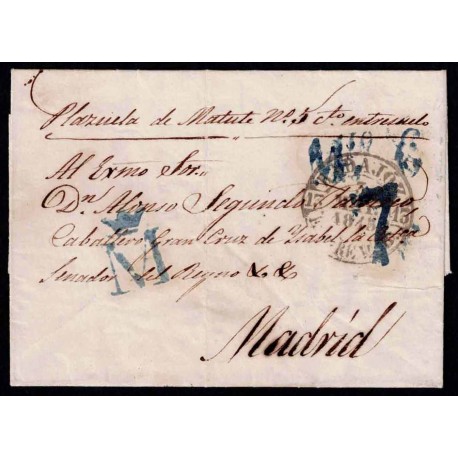 Plazuela de Matute Nº 5 Cto. entresuelo
Al Exmo Sor.
Dn. Alonso Segundo
Caballero Gran Cruz de Isabel la Catca.
Senador del Reyno & &
Madrid
M
7
G
BADAJOZ
13
13